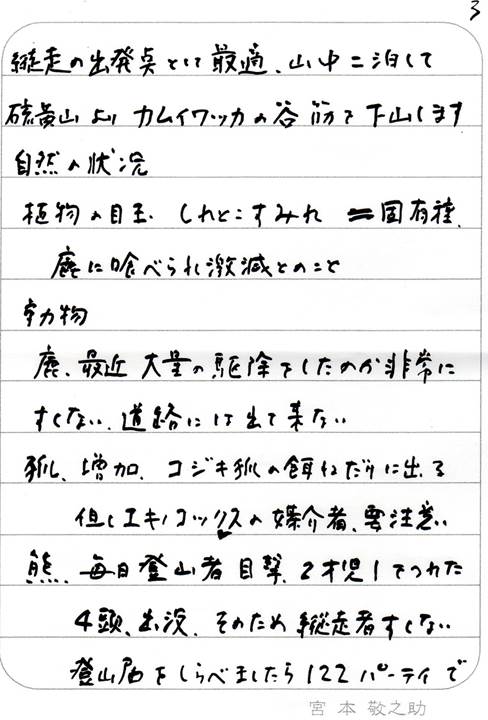 3
縦走の出発点として最適、山中二泊して
硫黄山よりカムイワッカの谷筋で下山します
自然の状況
植物の目玉 しれとこすみれ =固有種、
鹿に喰べられ激減とのこと
動物
鹿、最近大量の駆除をしたのか非常に
すくない、道路には出て来ない
狐、増加、コジキ狐の餌ねだりに出る
但しエキノコックスの媒介者、要注意
熊、毎日登山者目撃、2才児1でつれた
4頭、出没、そのため縦走者すくない
登山届をしらべましたら122パーティで
宮本敬之助